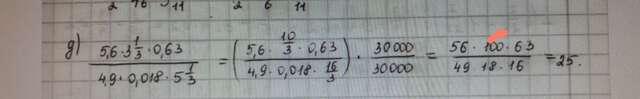 2 16 11 2 6 11
g) \frac{5,6 \cdot 3\frac{1}{3} \cdot 0,63}{4,9 \cdot 0,018 \cdot 5\frac{1}{3}} = \left(\frac{5,6 \cdot \frac{10}{3} \cdot 0,63}{4,9 \cdot 0,018 \cdot \frac{16}{3}}\right) \cdot \frac{30000}{30000} = \frac{56 \cdot 100 \cdot 63}{49 \cdot 18 \cdot 16} = 25.